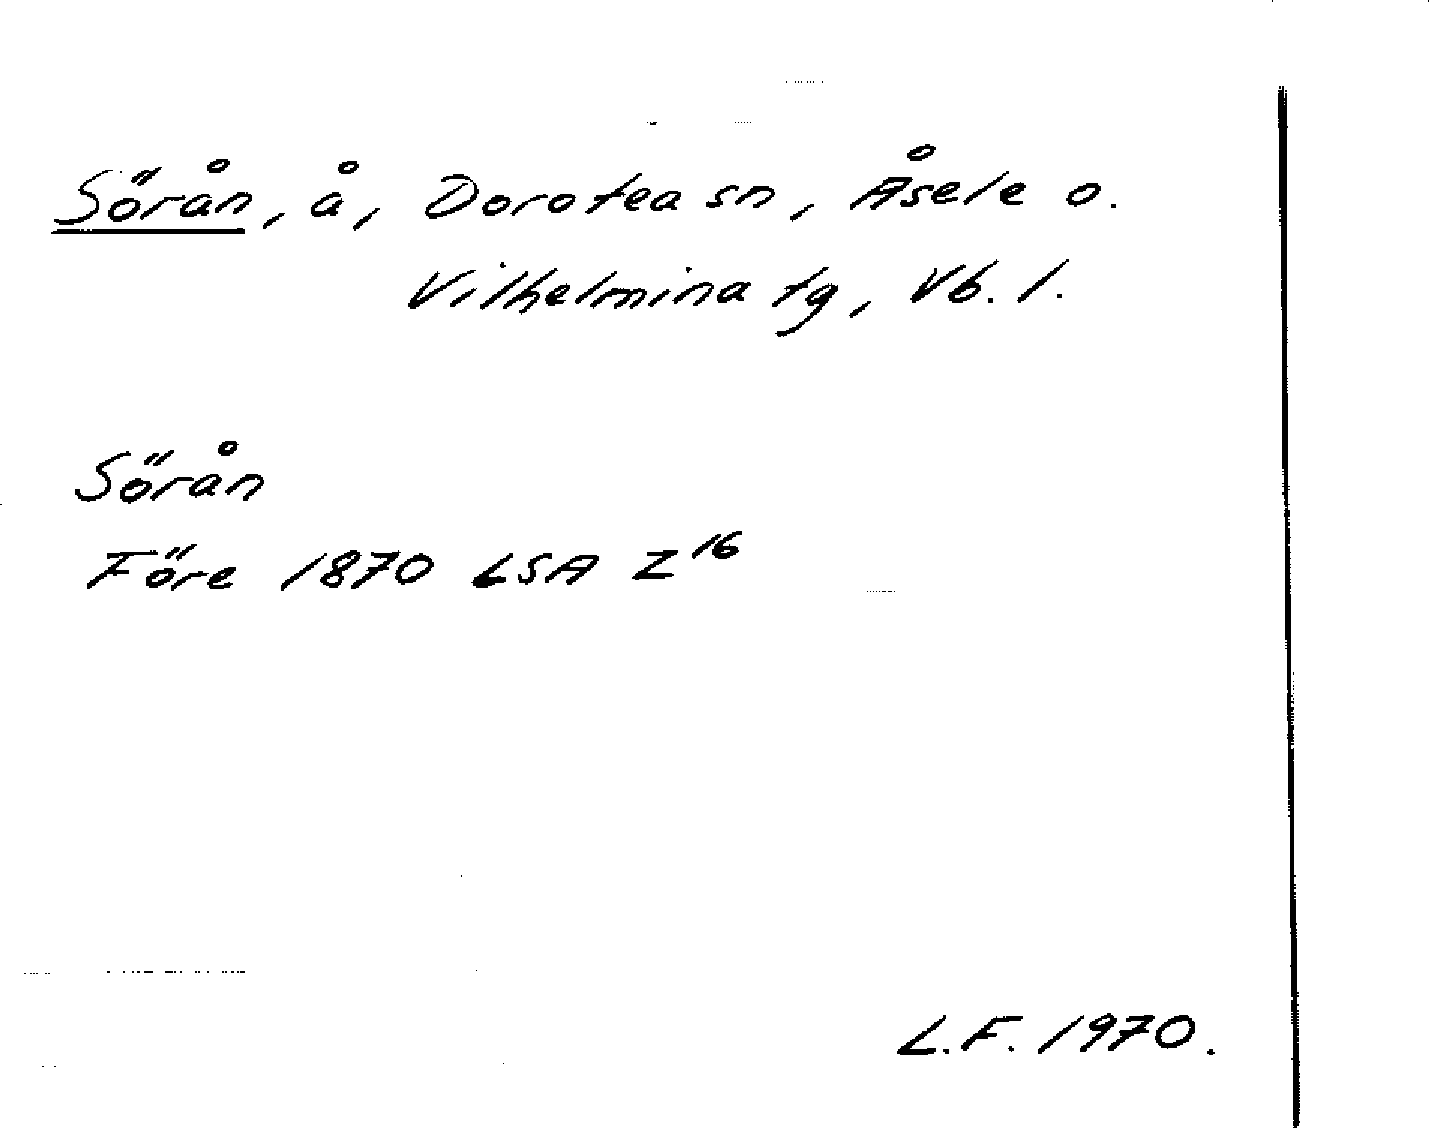 Sörån, å, Dorotea sn, Åsele o.
Vilhelmina tg, Vb. l.
Sörån
Före 1870 LSA Z16
L.F. 1970.